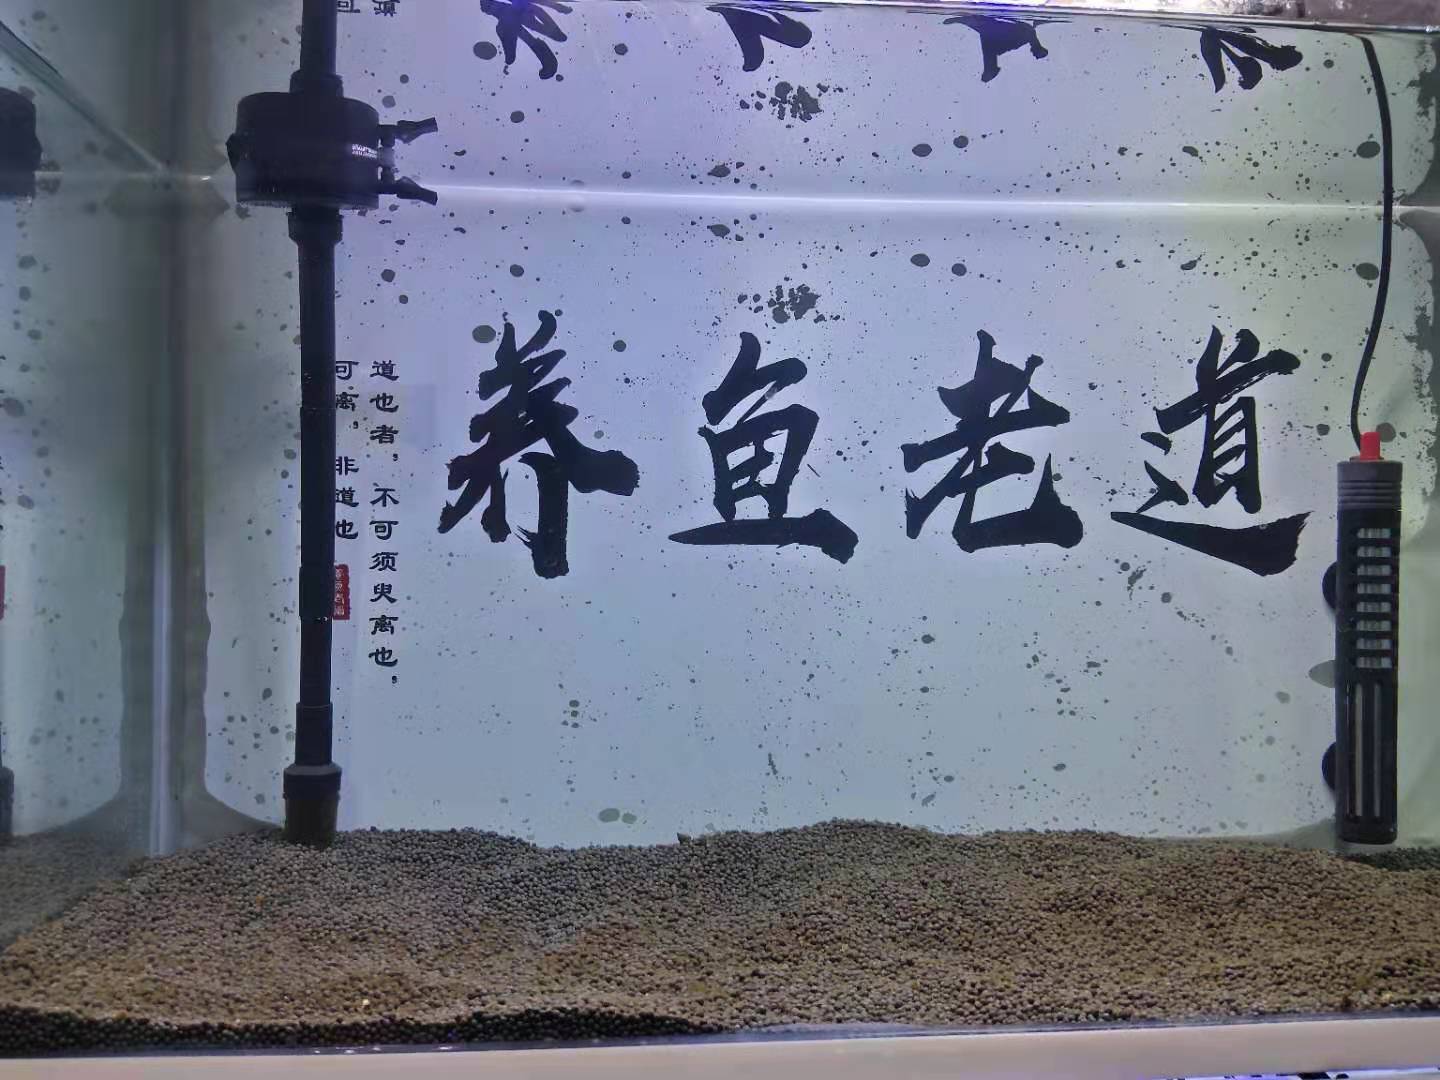 养鱼老道
道也者，不可须臾离也，
可离，非道也